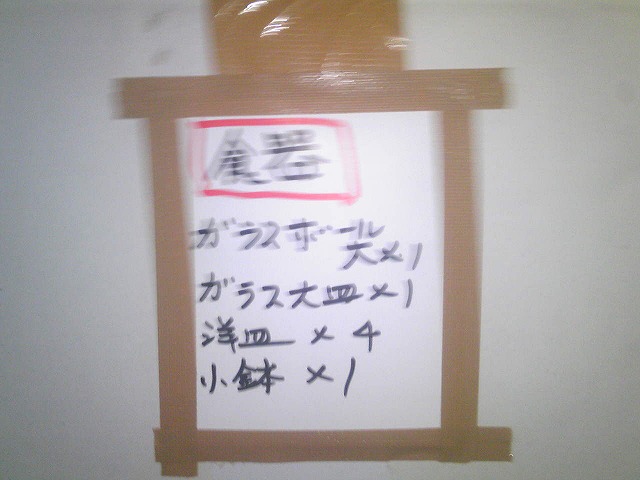 食器
ガラスボール
大×1
ガラス大皿×1
洋皿×4
小鉢×1